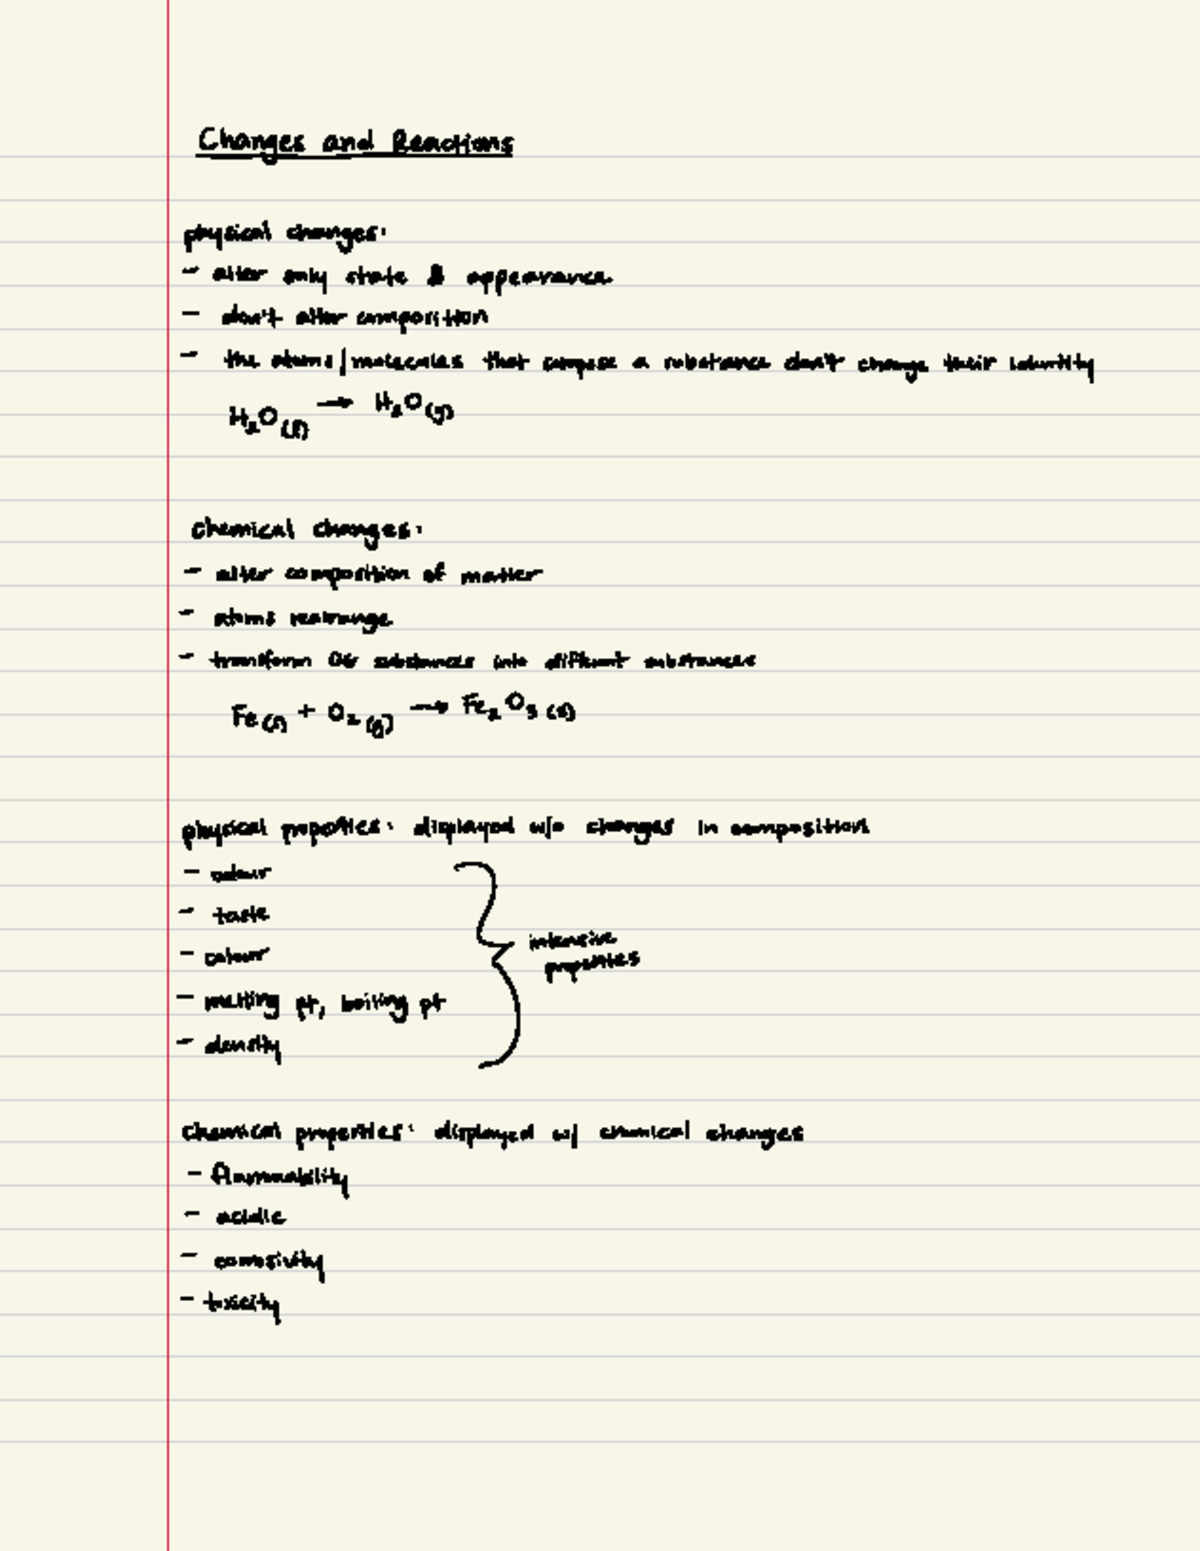 Changes and Reactions
physical changes:
- alter only state & appearance
- don't alter composition
- the atoms/molecules that compose a substance don't change their identity
H₂O(l) → H₂O(g)
chemical changes:
- alter composition of matter
- atoms rearrange
- transform substances into different substances
Fe(s) + O₂(g) → Fe₂O₃(s)
physical properties: displayed w/o changes in composition
- odour
- taste
- colour
- melting pt, boiling pt
- density
intensive
properties
chemical properties: displayed w/ chemical changes
- flammability
- acidic
- corrosivity
- toxicity